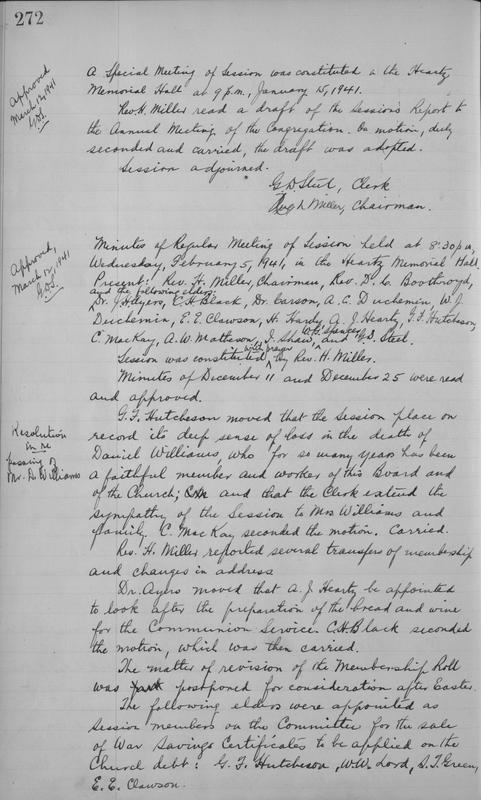 272
Approved
March 12, 1941
G.D.S.
A Special Meeting of Session was constituted in the Heartz
Memorial Hall at 9 p.m., January 15, 1941.
Rev. H. Miller read a draft of the Session's Report to
the Annual Meeting of the Congregation. On motion, duly
seconded and carried, the draft was adopted.
Session adjourned.
G. D. Steel, Clerk
Hugh Miller, Chairman.
Approved,
March 12, 1941
G.D.S.
Minutes of Regular Meeting of Session held at 8:30 p.m.,
Wednesday, February 5, 1941, in the Heartz Memorial Hall.
Present: Rev. H. Miller, Chairman, Rev. D. L. Boothroyd,
and the following elders:
Dr. J. H. Ayers, C. H. Black, Dr. Carson, A. C. Duchemin, W. J.
Duchemin, E. E. Clawson, H. Hardy, A. J. Heartz, G. F. Hutcheson,
C. MacKay, A. W. Matheson, J. Shaw, W. B. Spencer and G. D. Steel.
Session was constituted with prayer by Rev. H. Miller.
Minutes of December 11 and December 25 were read
and approved.
Resolution
in re
passing of
Mr. D. Williams
G. F. Hutcheson moved that the Session place on
record its deep sense of loss in the death of
Daniel Williams, who for so many years has been
a faithful member and worker of this Board and
of the Church; and that the Clerk extend the
sympathy of the Session to Mrs Williams and
family. C. MacKay seconded the motion. Carried.
Rev. H. Miller reported several transfers of membership
and changes in address
Dr. Ayers moved that A. J. Heartz be appointed
to look after the preparation of the bread and wine
for the Communion Service. C. H. Black seconded
the motion, which was then carried.
The matter of revision of the Membership Roll
was postponed for consideration after Easter.
The following elders were appointed as
Session members on the Committee for the sale
of War Savings Certificates to be applied on the
Church debt: G. F. Hutcheson, W. W. Lord, S. T. Green,
E. E. Clawson.